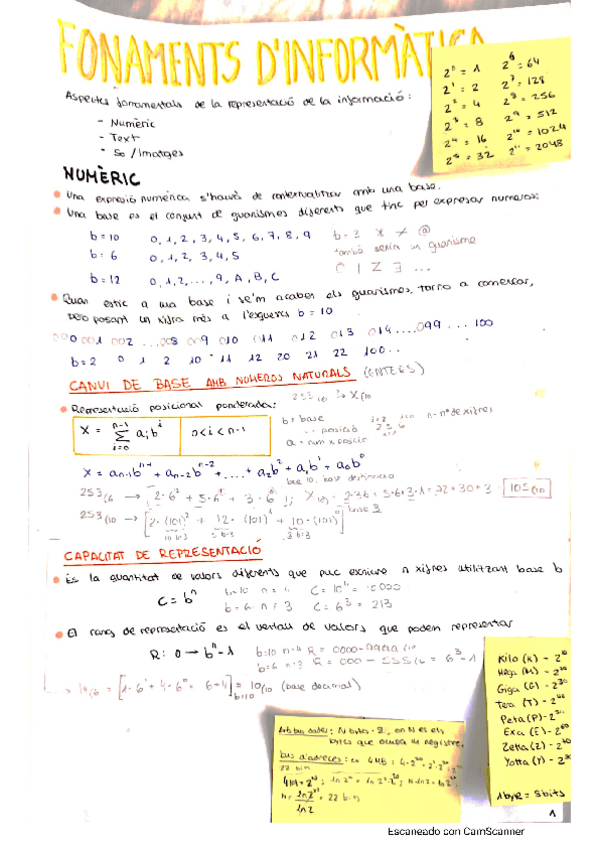 FONAMENTS D'INFORMÀTICA
2⁰ = 1
2¹ = 2
2² = 4
2³ = 8
2⁴ = 16
2⁵ = 32
2⁶ = 64
2⁷ = 128
2⁸ = 256
2⁹ = 512
2¹⁰ = 1024
2¹¹ = 2048
Aspectes fonamentals de la representació de la informació:
- Numèric
- Text
- So / Imatges
NUMÈRIC
Una expressió numèrica s'haurà de contextualitzar amb una base.
Una base es el conjunt de guarismes diferents que tinc per expresar numeros:
b = 10 0, 1, 2, 3, 4, 5, 6, 7, 8, 9
b = 3 * ≠ @
b = 6 0, 1, 2, 3, 4, 5
també serien un guarisme
b = 12 0, 1, 2, ..., 9, A, B, C
Quan estic a una base i se'm acaben els guarismes, torno a començar,
però posant un xifra més a l'esquerra b = 10
000 001 002 ...008 009 010 011 012 013 014 ....099 ... 100
b = 2 0 1 2 10 11 12 20 21 22 100...
CANVI DE BASE AMB NUMEROS NATURALS (ENTERS)
Representació posicional ponderada: 253₍₆ → X₍₁₀
X = Σ aᵢbⁱ
n-1
i=0
0 < i < n-1
b = base
posició
n - nº de xifres
X = aₙ₋₁bⁿ⁻¹ + aₙ₋₂bⁿ⁻² + .... + a₂b² + a₁b¹ + a₀b⁰
253₍₆ → [2·6² + 5·6¹ + 3·6⁰]; X₍₁₀ = 2·36 + 5·6 + 3·1 = 72 + 30 + 3 105₍₁₀
253₍₁₀ → [2·(101)² + 12·(101)¹ + 10·(101)⁰] base 3
CAPACITAT DE REPRESENTACIÓ
És la quantitat de valors diferents que puc escriure n xifres utilitzant base b
C = bⁿ
b=10 n = 4 C = 10⁴ = 10000
b = 6 n = 3 C = 6³ = 213
El rang de representació es el ventall de valors que podem representar
R: 0 → bⁿ - 1
b=10 n=4 R = 0000 - 9999₍₁₀
b=6 n=3 R = 000 - 555₍₆ = 6³ - 1
→ 14₍₆ = [1·6¹ + 4·6⁰ = 6+4] b=10 = 10₍₁₀ (base decimal)
Kilo (K) - 2¹⁰
Mega (M) - 2²⁰
Giga (G) - 2³⁰
Tera (T) - 2⁴⁰
Peta (P) - 2⁵⁰
Exa (E) - 2⁶⁰
Zetta (Z) - 2⁷⁰
Yotta (Y) -
1 byte = 8 bits
bus dades: N bits - 2, on N és els
bytes que ocupa un registre.
bus d'adreces: ex 4MB: 4·2²⁰ = 2²·2²⁰
22 bin
= 22 bin
ln 2
1
Escaneado con CamScanner